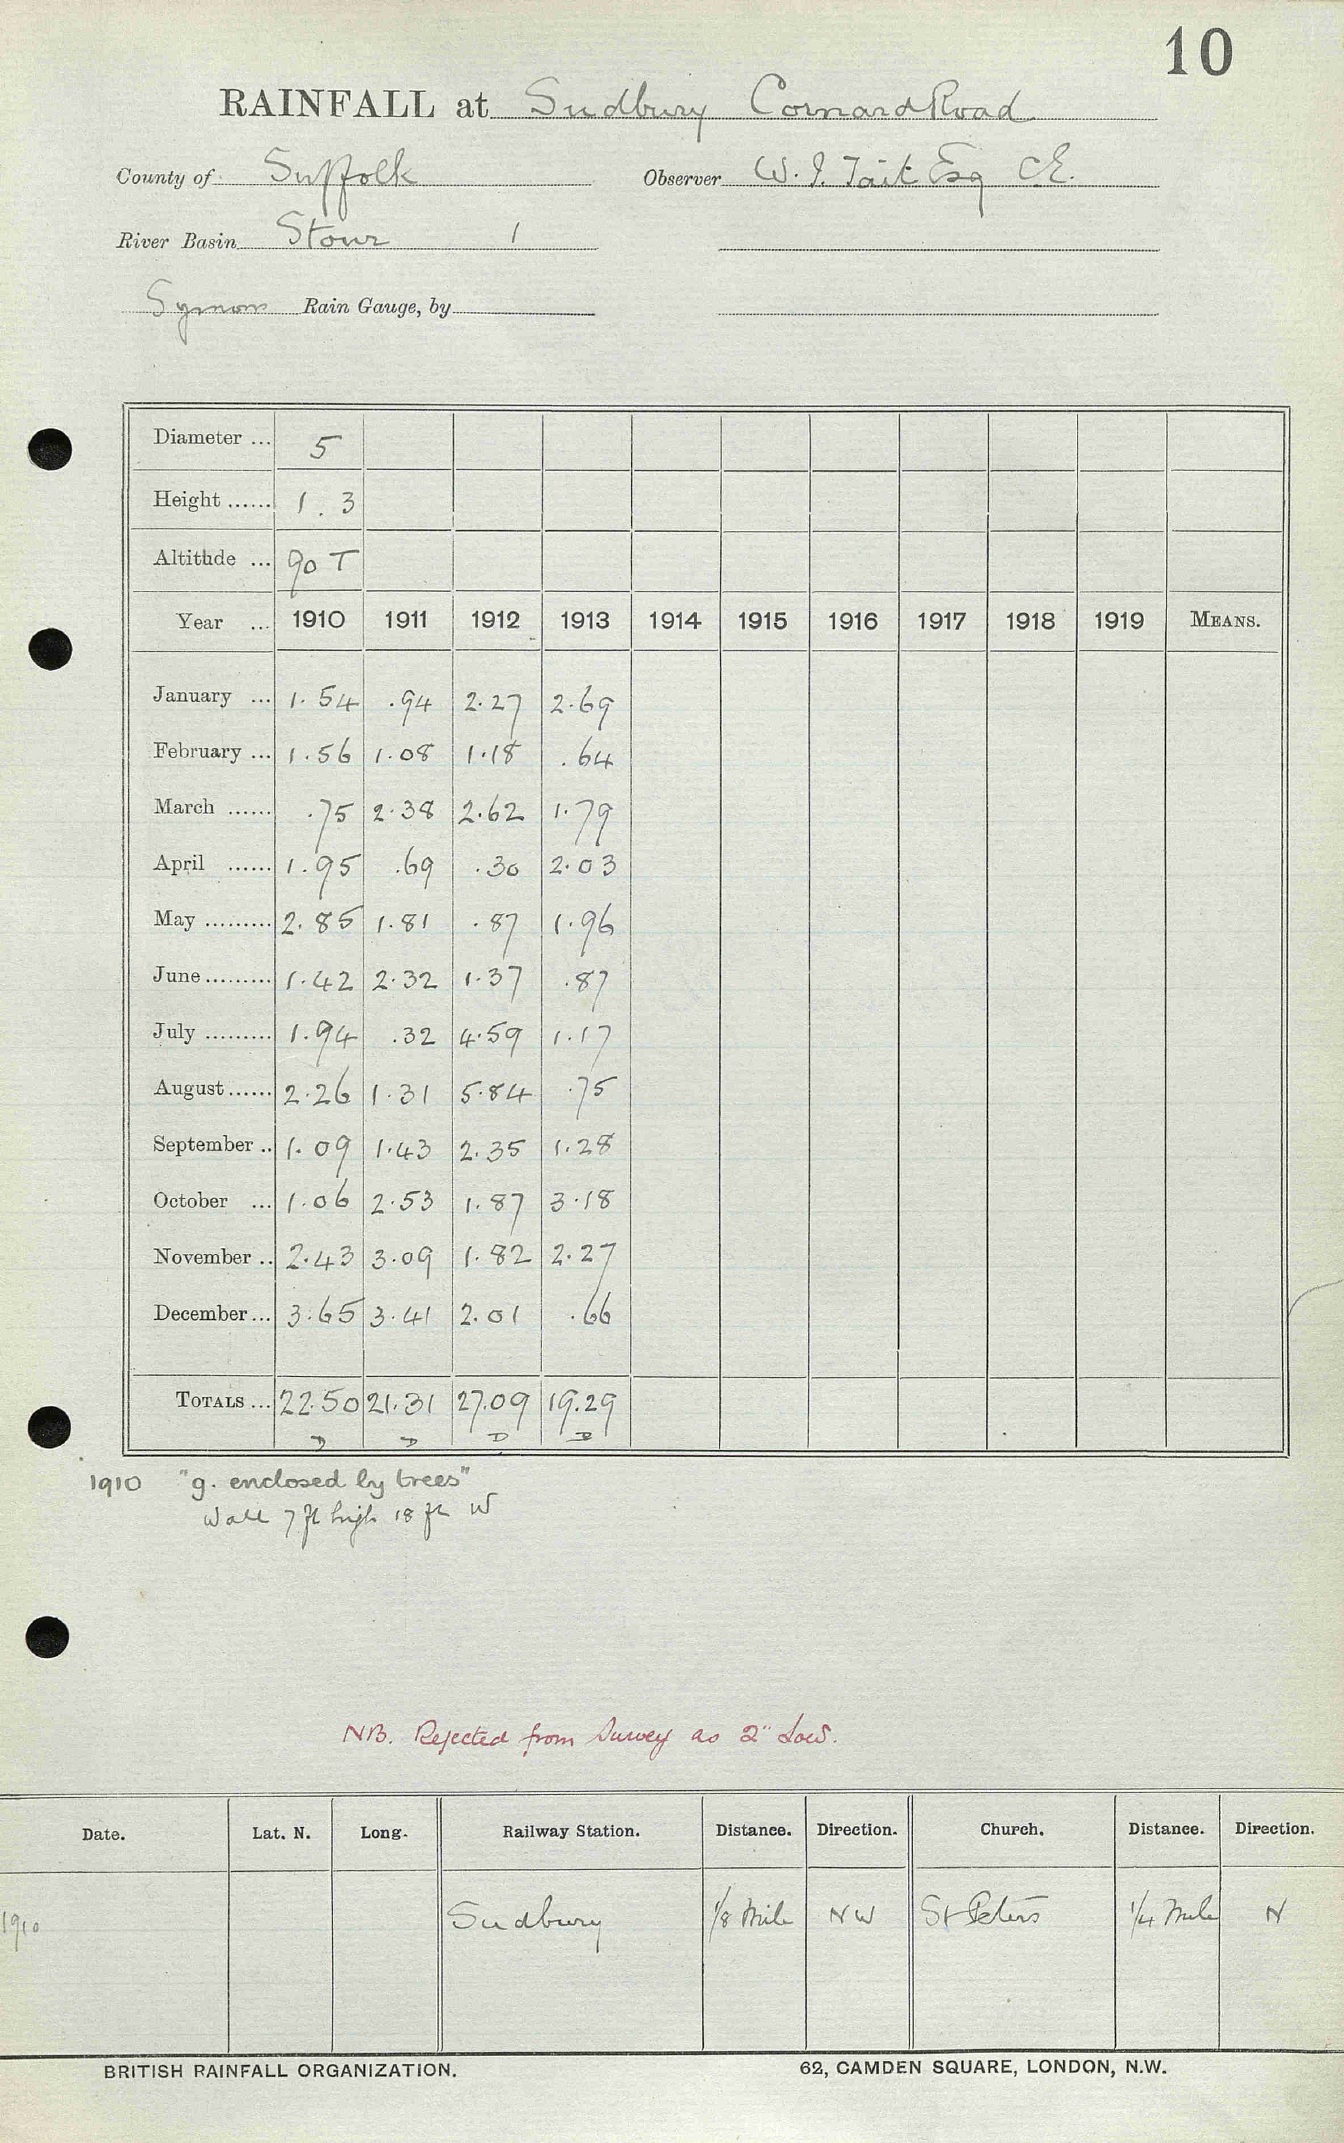 10
RAINFALL at Sudbury Cornard Road
County of Suffolk Observer W. J. Tait Esq C.E.
River Basin Stour 1
Symons Rain Gauge, by
Diameter ... 5
Height ...... 1. 3
Altitude ... 90 T
Year ... 1910 1911 1912 1913 1914 1915 1916 1917 1918 1919 MEANS.
January ... 1.54 .94 2.27 2.69
February ... 1.56 1.08 1.18 .64
March ...... .75 2.38 2.62 1.79
April ...... 1.95 .69 .30 2.03
May ......... 2.85 1.81 .87 1.96
June ......... 1.42 2.32 1.37 .87
July ......... 1.94 .32 4.59 1.17
August ...... 2.26 1.31 5.84 .75
September .. 1.09 1.43 2.35 1.28
October ... 1.06 2.53 1.87 3.18
November .. 2.43 3.09 1.82 2.27
December ... 3.65 3.41 2.01 .66
TOTALS ... 22.50 21.31 27.09 19.29
1910 "g. enclosed by trees"
Wall 7 ft high 18 ft W
NB. Rejected from Survey as 2" low.
Date. Lat. N. Long. Railway Station. Distance. Direction. Church. Distance. Direction.
1910 Sudbury 1/8 Mile NW St Peters 1/4 Mile N
BRITISH RAINFALL ORGANIZATION. 62, CAMDEN SQUARE, LONDON, N.W.